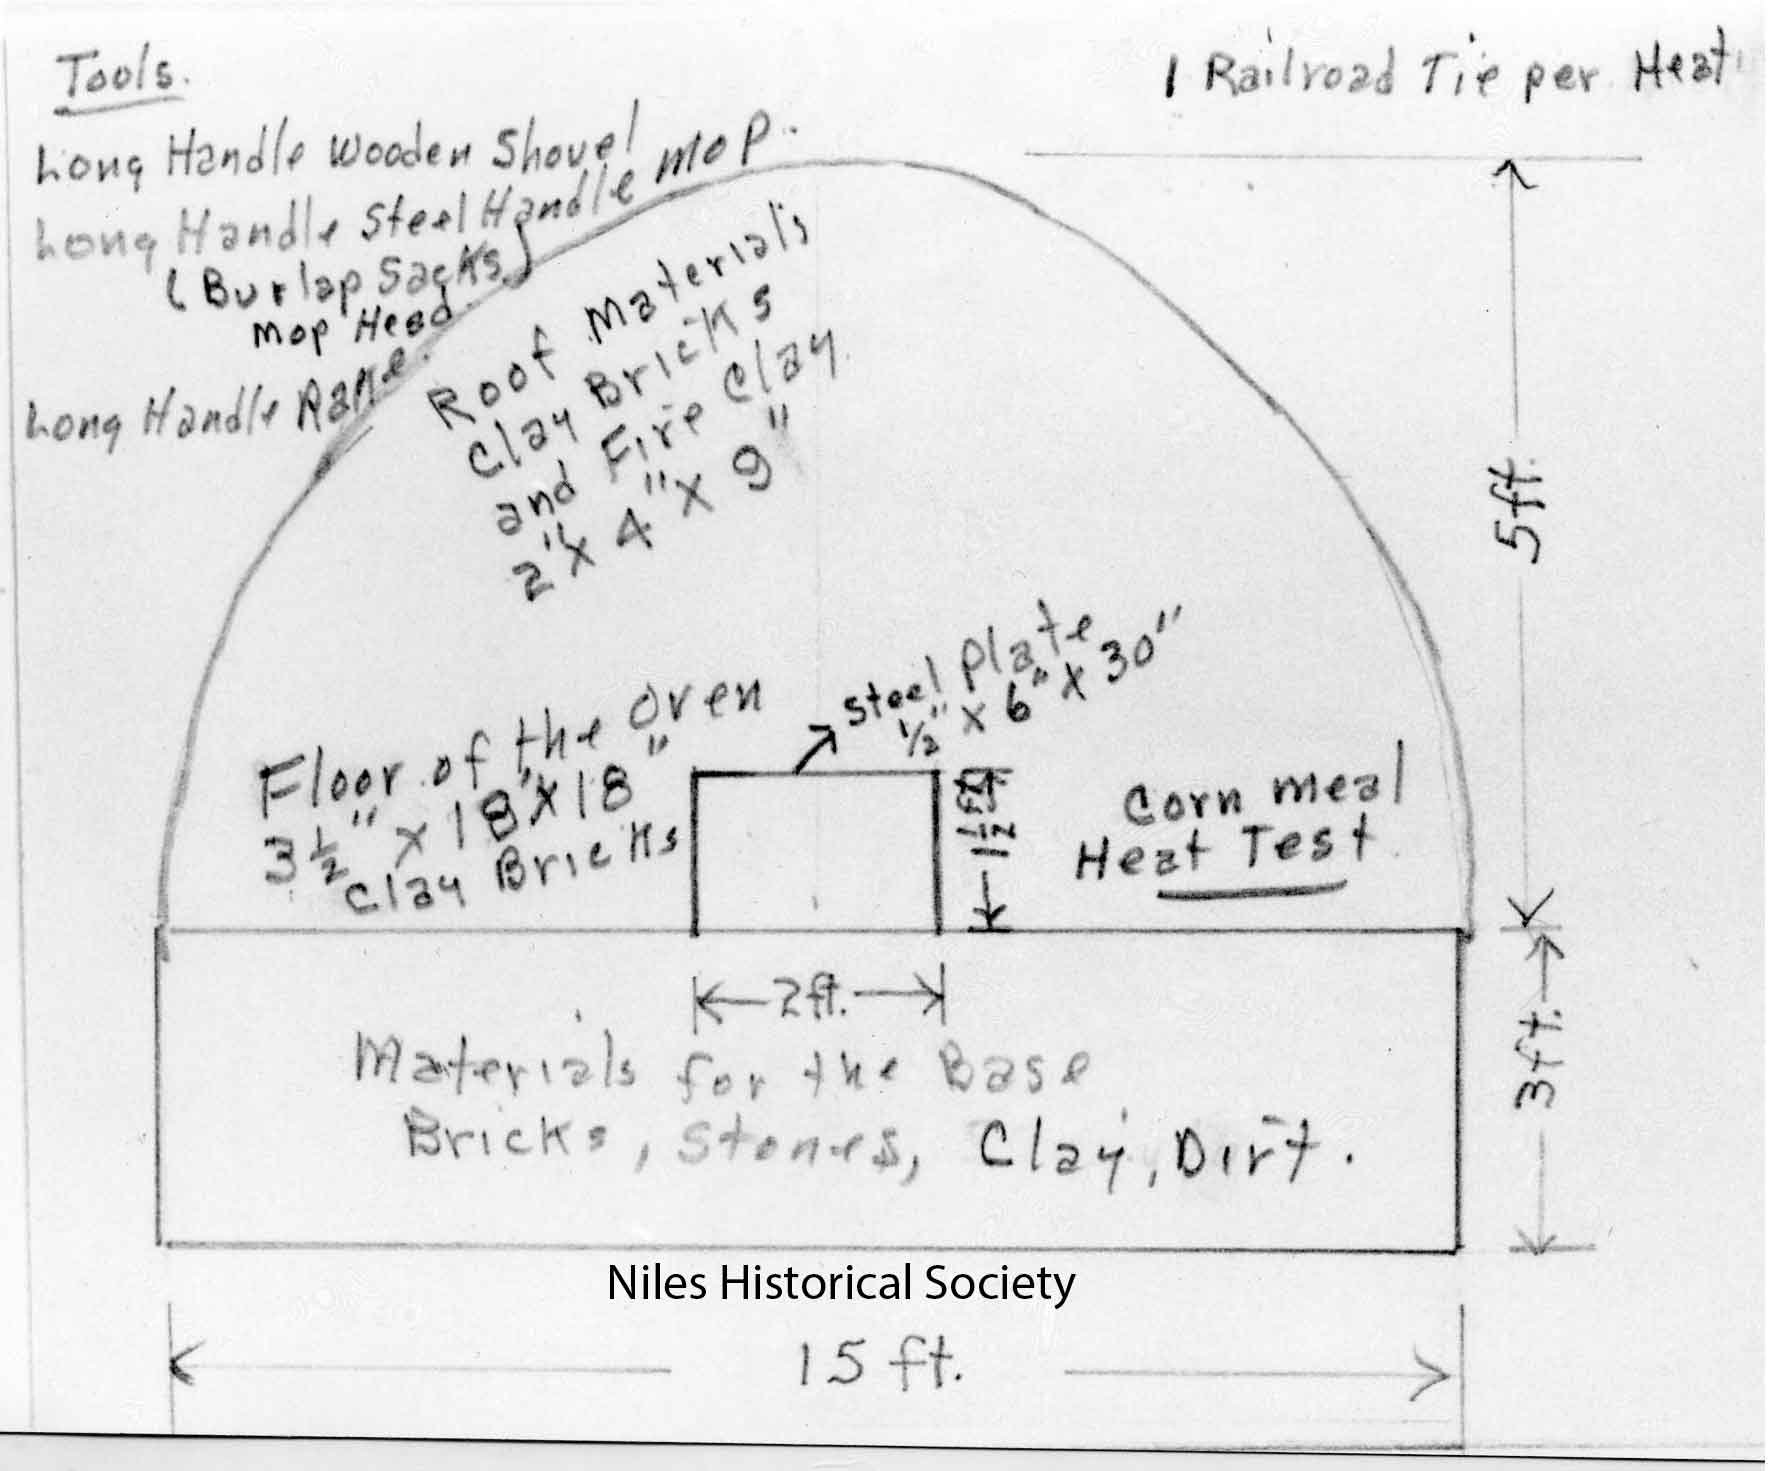 Tools.
Long Handle Wooden Shovel
Long Handle Steel Handle Mop.
(Burlap Sacks)
Mop Head.
Long Handle Rake.
1 Railroad Tie per Heat
Roof Materials
Clay Bricks
and Fire Clay
2" x 4" x 9"
5ft.
Steel Plate
1/2" x 6" x 30"
Floor of the Oven
3 1/2" x 18" x 18"
Clay Bricks
1 1/2
Corn Meal
Heat Test.
2ft.
3ft.
Materials for the Base
Bricks, Stones, Clay, Dirt.
Niles Historical Society
15 ft.